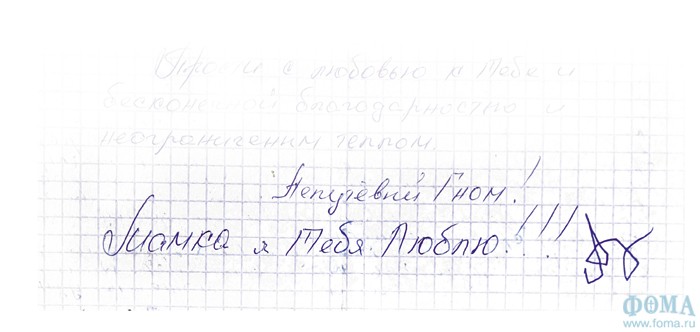 Просто с любовью к Тебе и
бесконечной благодарностью и
неограниченим теплом.
Непутёвий Гном!
Мамка я Тебя Люблю!!!
ФОМА
www.foma.ru